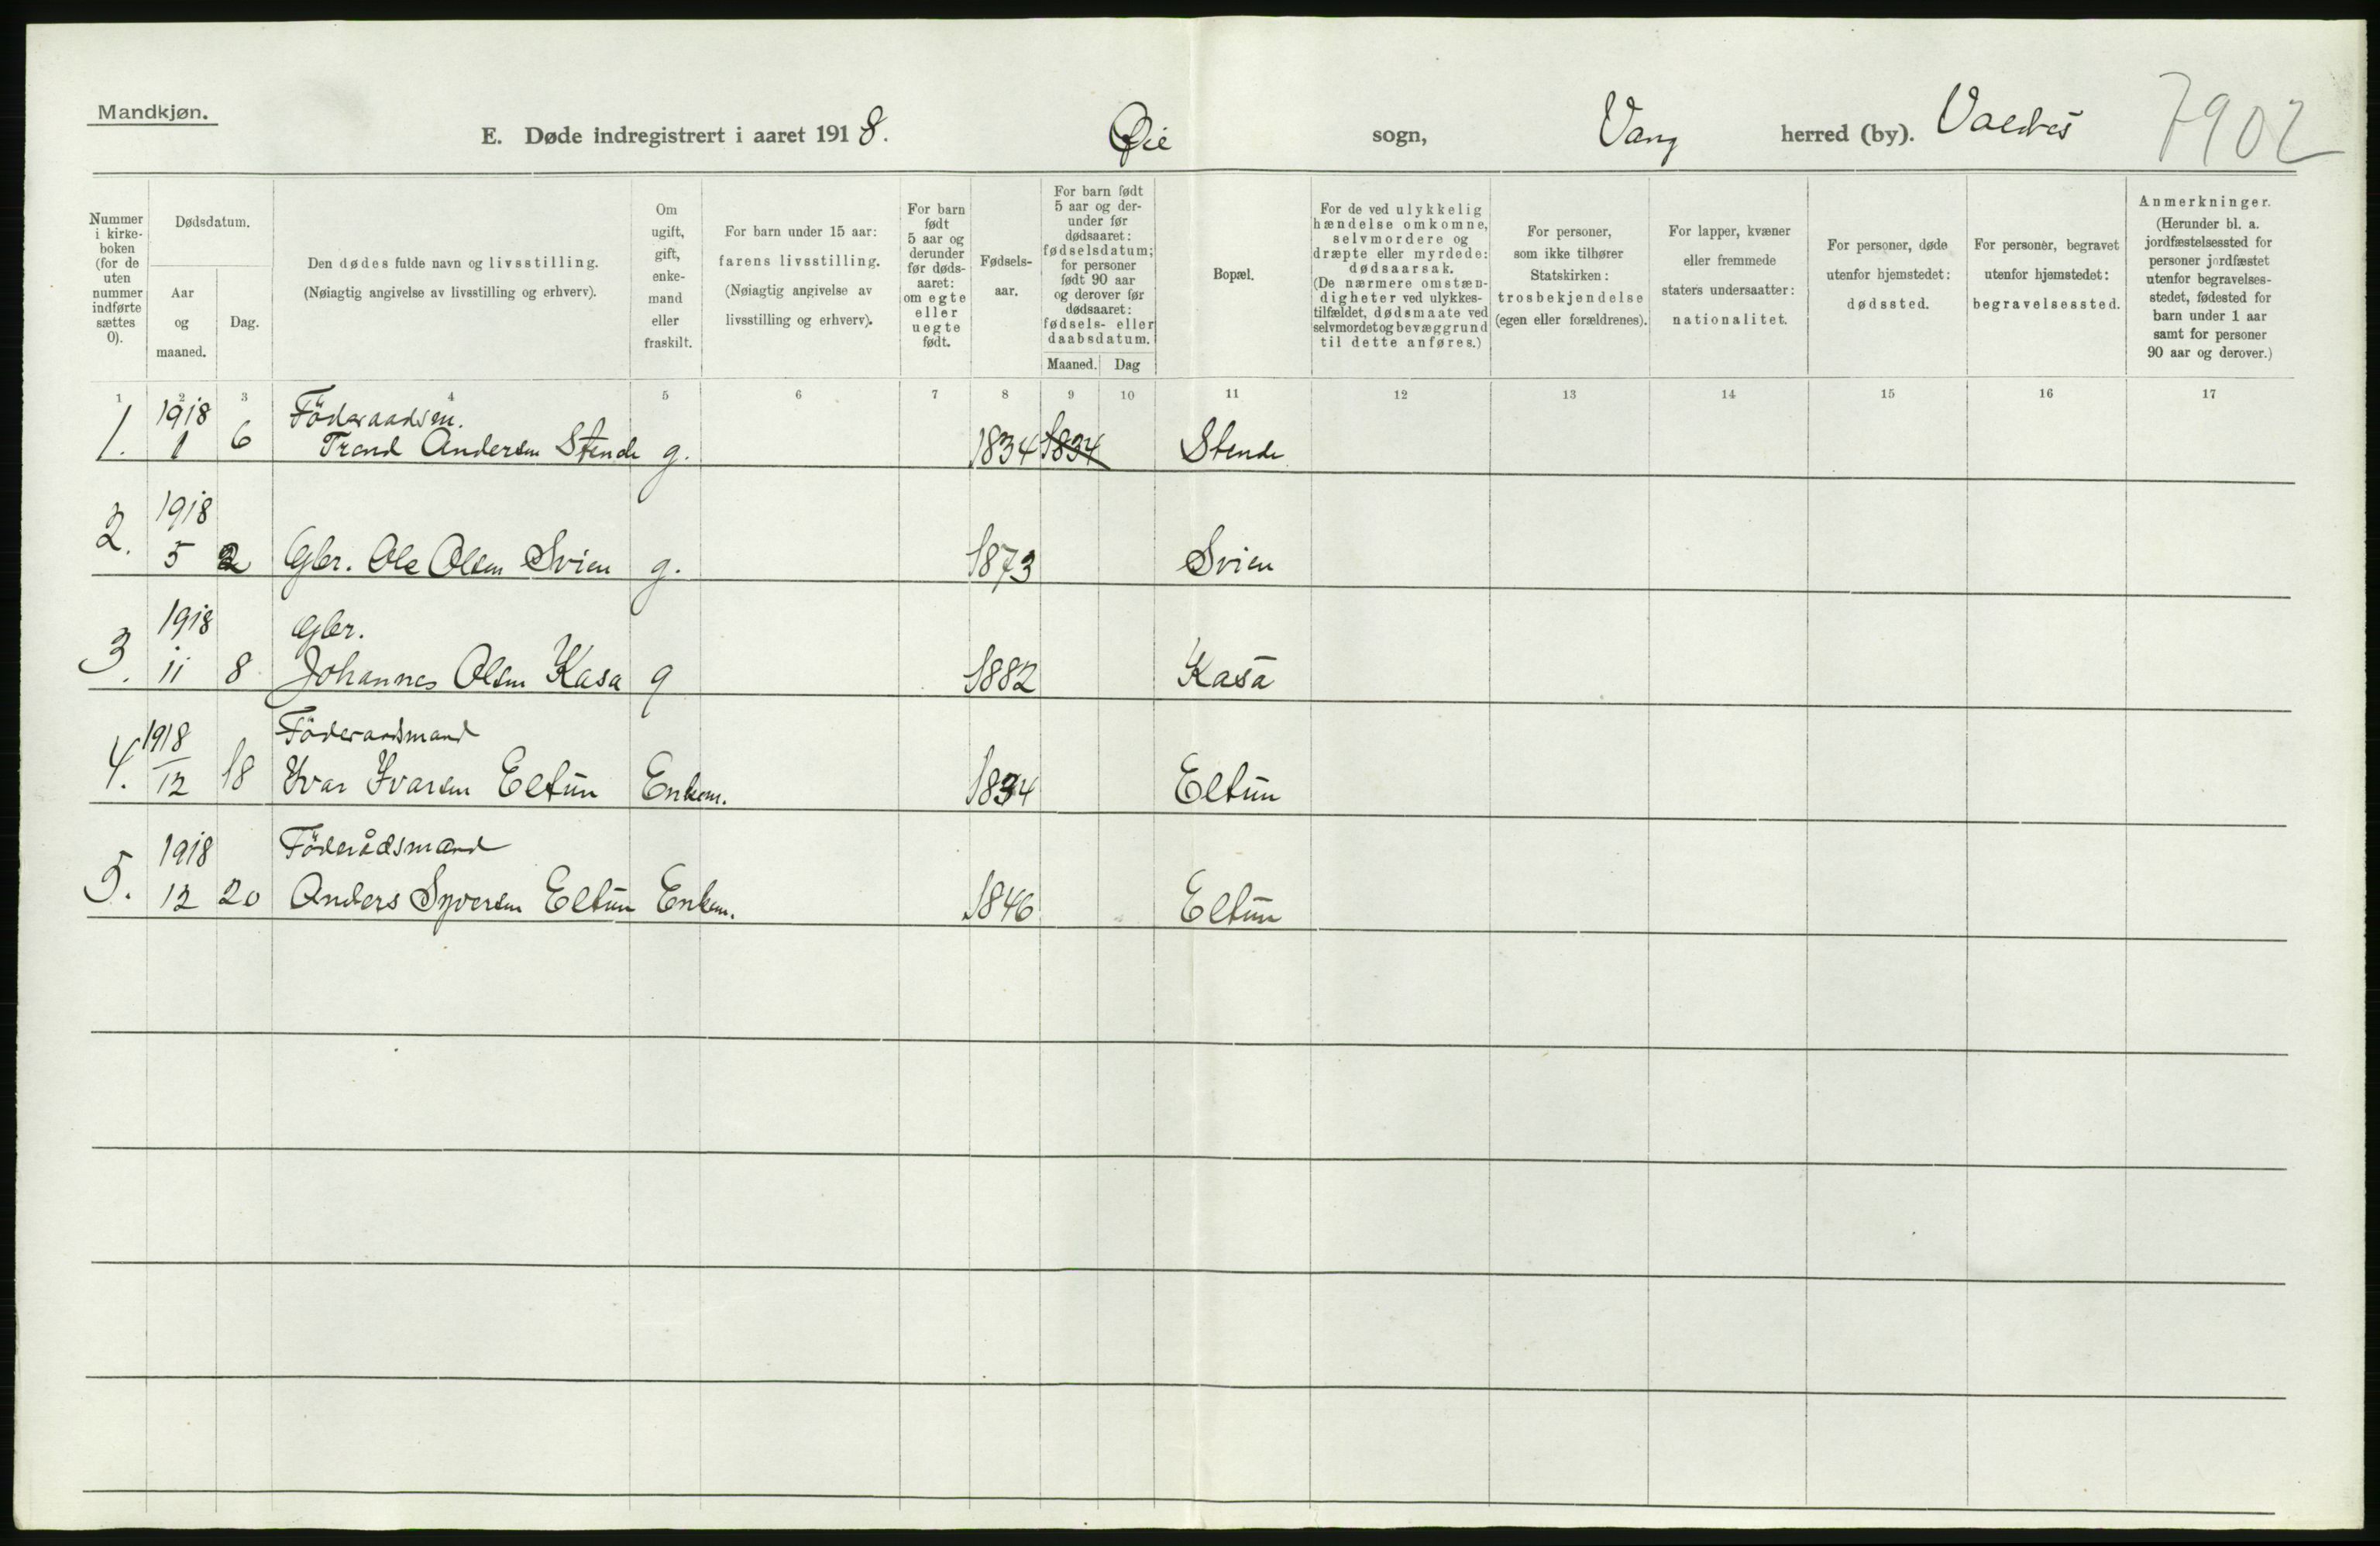 Mandkjøn.
E. Døde indregistrert i aaret 1918. Øie sogn, Vang herred (by). Valdres 7902
Nummer i kirkeboken (for de uten nummer indførte sættes 0).
Dødsdatum.
Aar og maaned.
Dag.
Den dødes fulde navn og livsstilling.
(Nøiagtig angivelse av livsstilling og erhverv).
Om ugift, gift, enkemand eller fraskilt.
For barn under 15 aar: farens livsstilling. (Nøiagtig angivelse av livsstilling og erhverv).
For barn født 5 aar og derunder før dødsaaret: om egte eller uegte født.
Fødselsaar.
For barn født 5 aar og derunder før dødsaaret: fødselsdatum; for personer født 90 aar og derover før dødsaaret: fødsels- eller daabsdatum.
Maaned. Dag
Bopæl.
For de ved ulykkelig hændelse omkomne, selvmordere og dræpte eller myrdede: dødsaarsak. (De nærmere omstændigheter ved ulykkestilfældet, dødsmaate ved selvmordet og bevæggrund til dette anføres.)
For personer, som ikke tilhører Statskirken: trosbekjendelse (egen eller forældrenes).
For lapper, kvæner eller fremmede staters undersaatter: nationalitet.
For personer, døde utenfor hjemstedet: dødssted.
For personer, begravet utenfor hjemstedet: begravelsessted.
Anmerkninger. (Herunder bl. a. jordfæstelsessted for personer jordfæstet utenfor begravelsesstedet, fødested for barn under 1 aar samt for personer 90 aar og derover.)
1 2 3 4 5 6 7 8 9 10 11 12 13 14 15 16 17
1918 Föderaadsm.
1. 1 6 Trond Andersen Stende g. 1834 1834 Stende
1918
2. 5 2 Gbr. Ole Olsen Svien g. 1873 Svien
1918 Gbr.
3. 11 8 Johannes Olsen Kasa g 1882 Kasa
1918 Föderaadsmand
4. 12 18 Ivar Ivarsen Eltun Enkem. 1834 Eltun
1918 Föderådsmand
5. 12 20 Anders Syversen Eltun Enkem. 1846 Eltun